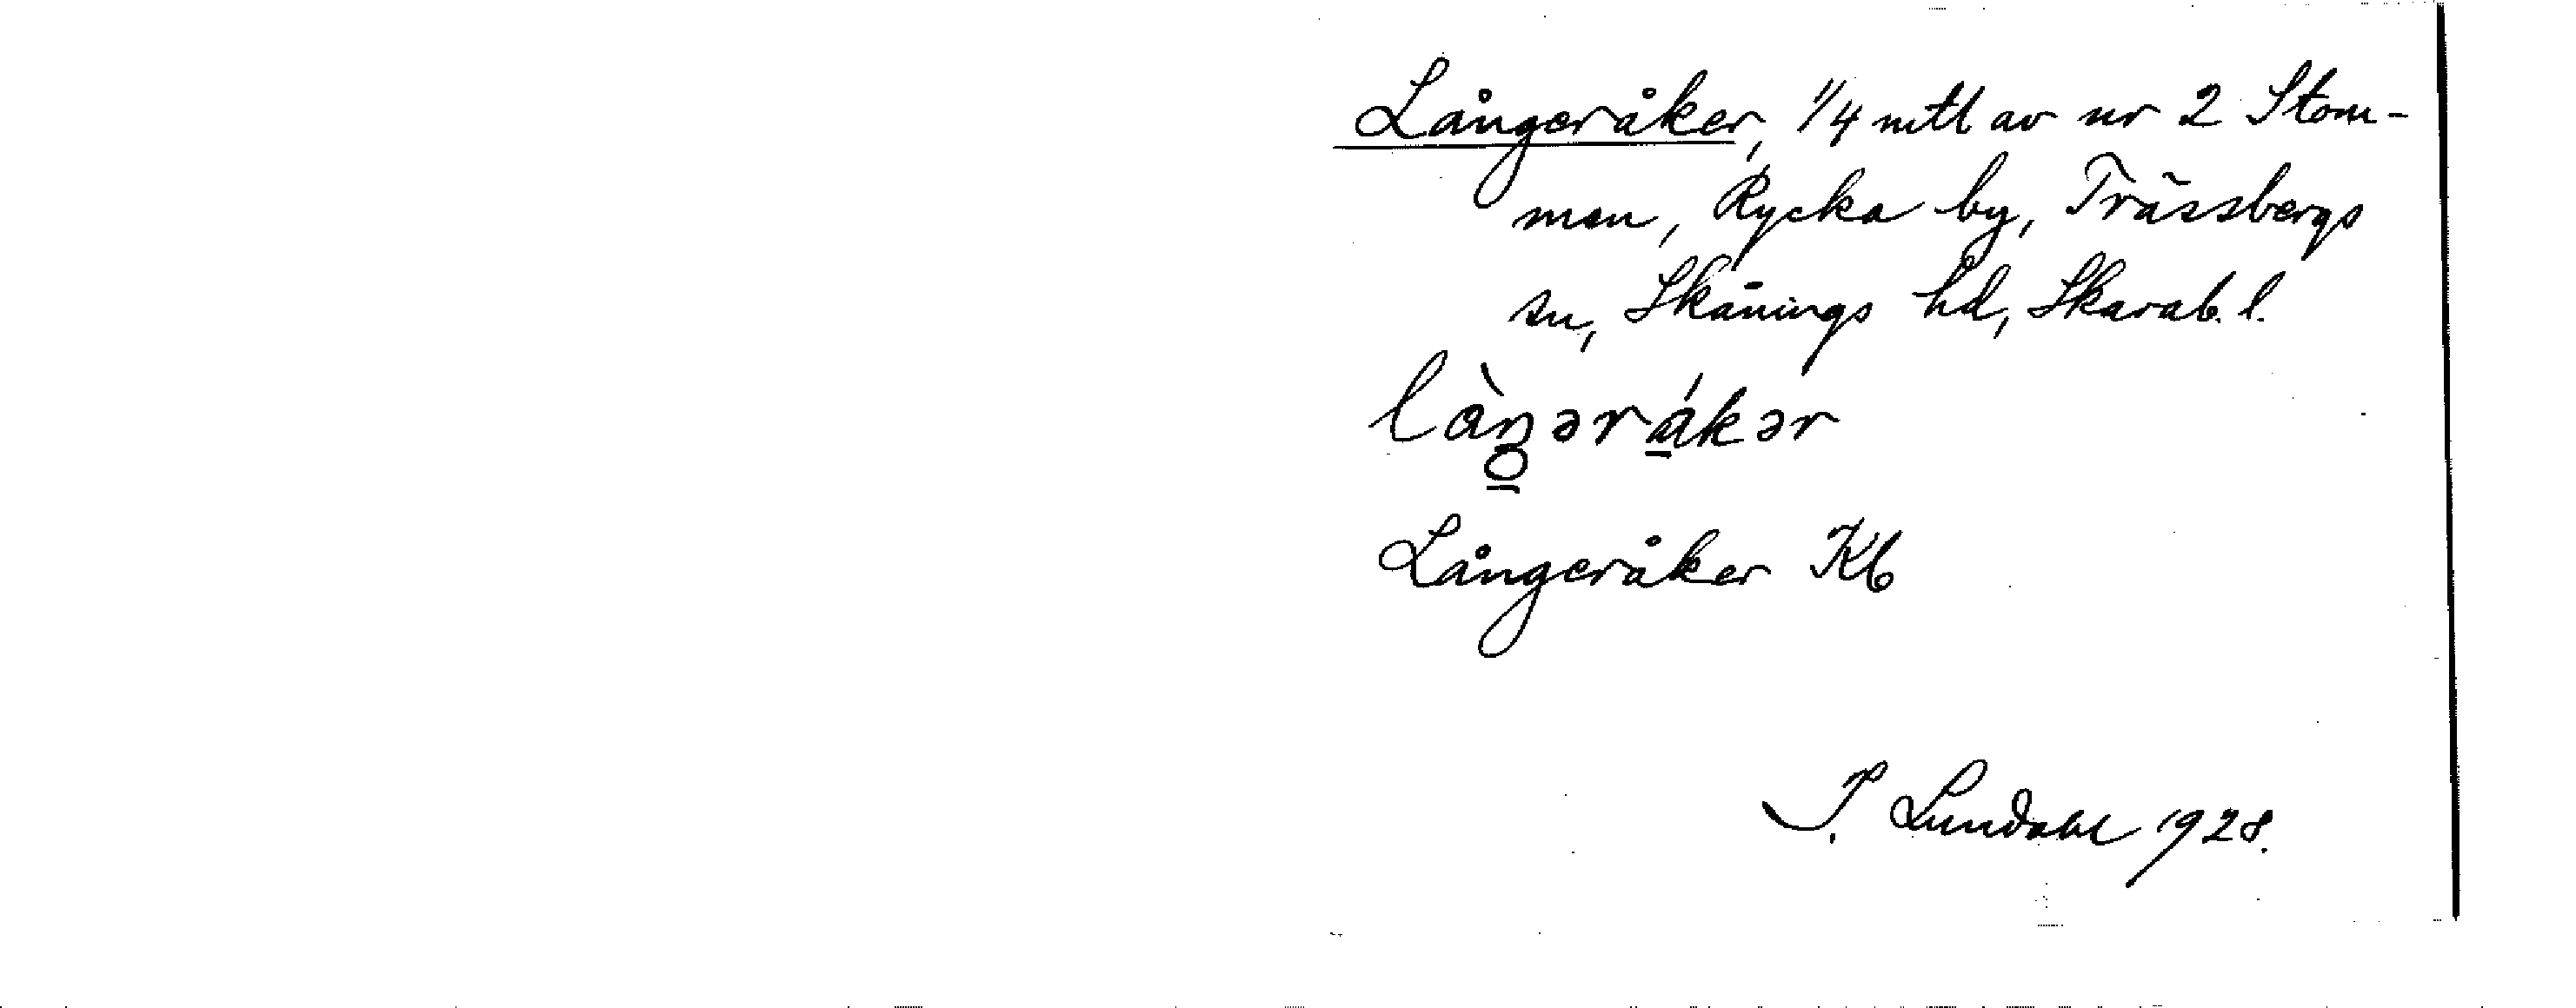 Långeråker, 1/4 mtl av nr 2 Stom-
men, Rycka by, Trässbergs
sn, Skånings hd, Skarab. l.
làŋərákər
Långeråker Kb
I. Lundahl 1928.